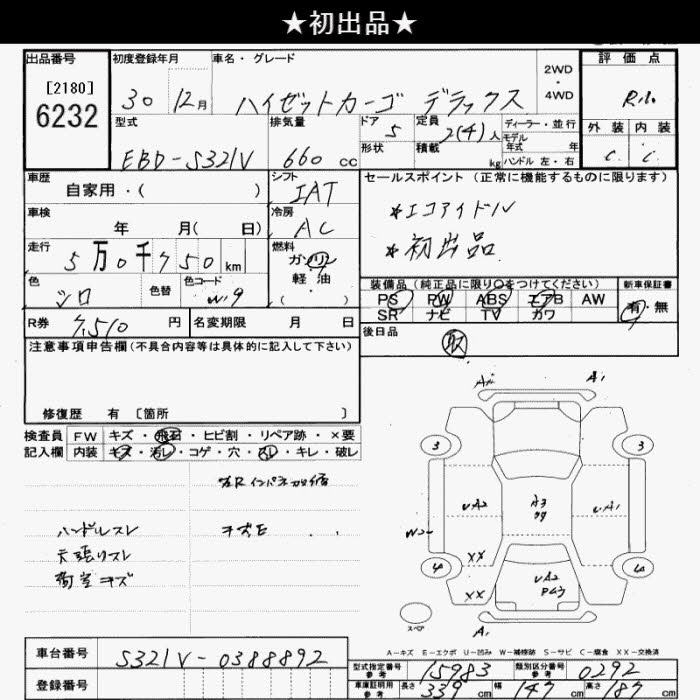 ★初出品★
出品番号 初度登録年月 車名・グレード 2WD・4WD 評価点
[2180]
6232
30 12月 ハイゼットカーゴ デラックス R1.
型式 排気量 ドア 定員 ディーラー・並行 外装 内装
EBD-S321V 660 cc 5 2(4)人 モデル年式 年 C C
形状 積載 kg ハンドル 左・右
車歴 シフト セールスポイント (正常に機能するものに限ります)
自家用・( ) IAT
*エコアイドル
車検 冷房
年 月( 日) AC
*初出品
走行 燃料
5万0千750km ガソリン
軽油
・
( )
色 色替 色コード
シロ W09
装備品 (純正品に限り○をつけてください) 新車保証書
PS PW ABS エアB AW 有・無
SR ナビ TV カワ
R券 7,510 円 名変期限 月 日
後日品
取
注意事項申告欄(不具合内容等は具体的に記入して下さい)
修復歴 有 [箇所 ]
検査員 FW キズ・飛石・ヒビ割・リペア跡・×要
記入欄 内装 キズ・汚レ・コゲ・穴・スレ・キレ・破レ
ハンドルスレ キズE
天張リスレ
荷室キズ
A2 A1
3 3
UA2 A3 UA1
W2
XX
4 4
UA2
XX
スペア A1
A-キズ E-エクボ U-凹み W-補修跡 S-サビ C-腐食 XX-交換済
車台番号 S321V-0388892
登録番号
型式指定番号 参考 15983 類別区分番号 参考 0292
車庫証明用 参考 長さ 339 cm 幅 147 cm 高さ 187 cm